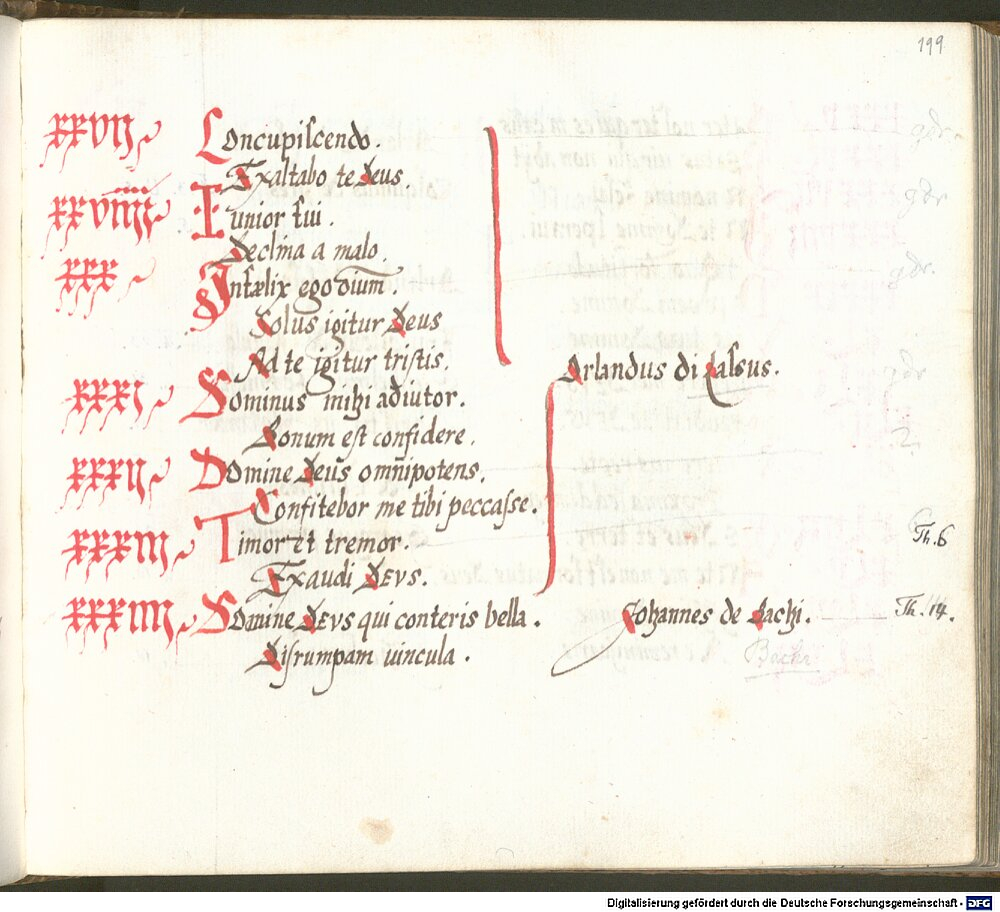 199
xxvii Concupiscendo.
Exaltabo te Deus
xxviiii Iunior fui.
Declina a malo.
xxx Infælix ego om̄ium.
Solus igitur Deus
Ad te igitur tristis.
Orlandus di Lassus.
xxxi Dominus mihi adiutor.
Bonum est confidere.
xxxii Domine Deus omnipotens.
Confitebor me tibi peccasse.
xxxiii Timor et tremor. Th. 6
Exaudi DEVS.
xxxiiii Domine DEVS qui conteris bella. Johannes de Bachi. Th. 14.
Disrumpam vincula. Bachi
Digitalisierung gefördert durch die Deutsche Forschungsgemeinschaft - DFG